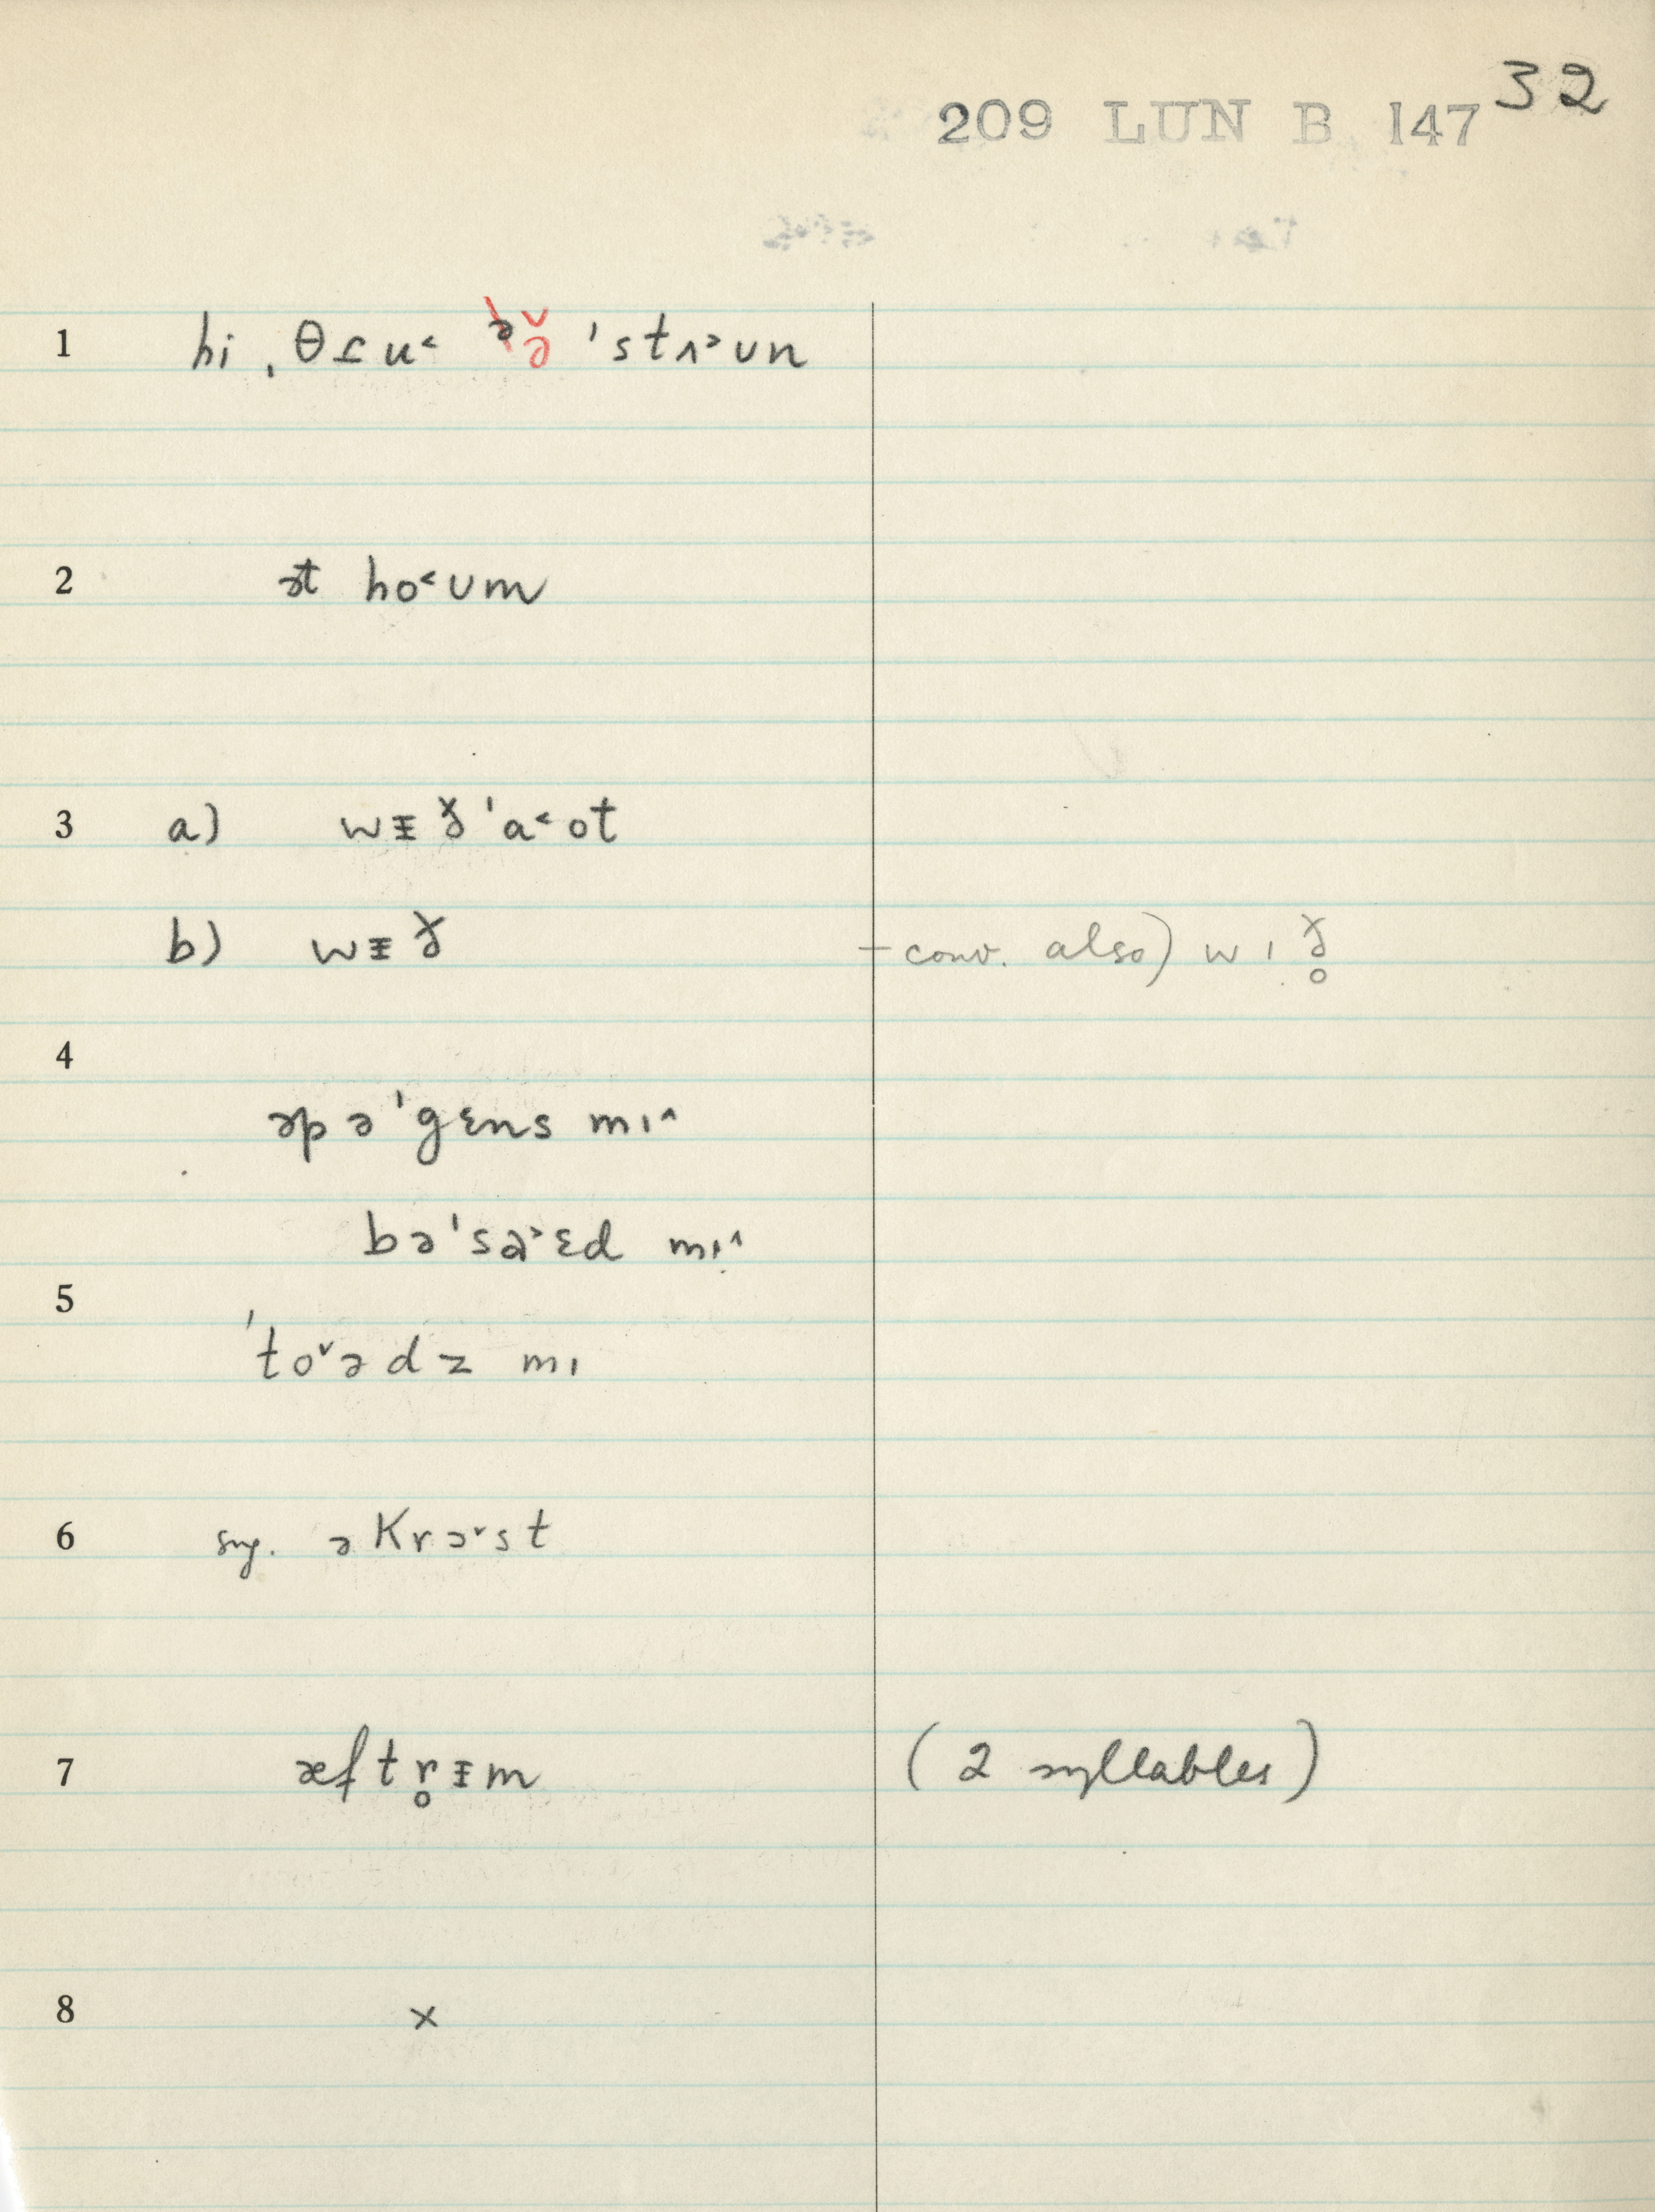 32
209 LUN B 147
1 hi ˌθɪu˂ ə̌ ˈstʌ˃ʊn
2 ət ho˂ʊm
3 a) wᵻð ˈa˂ot
b) wᵻð – conv. also) wɪð̥
4
əp əˈgɛns mɪ˄
bəˈsɑ˃ɛd mɪ˄
5
ˈto˅ədz mɪ
6 sug. əkrɔ˅st
7 æftr̥ᵻm (2 syllables)
8 ×